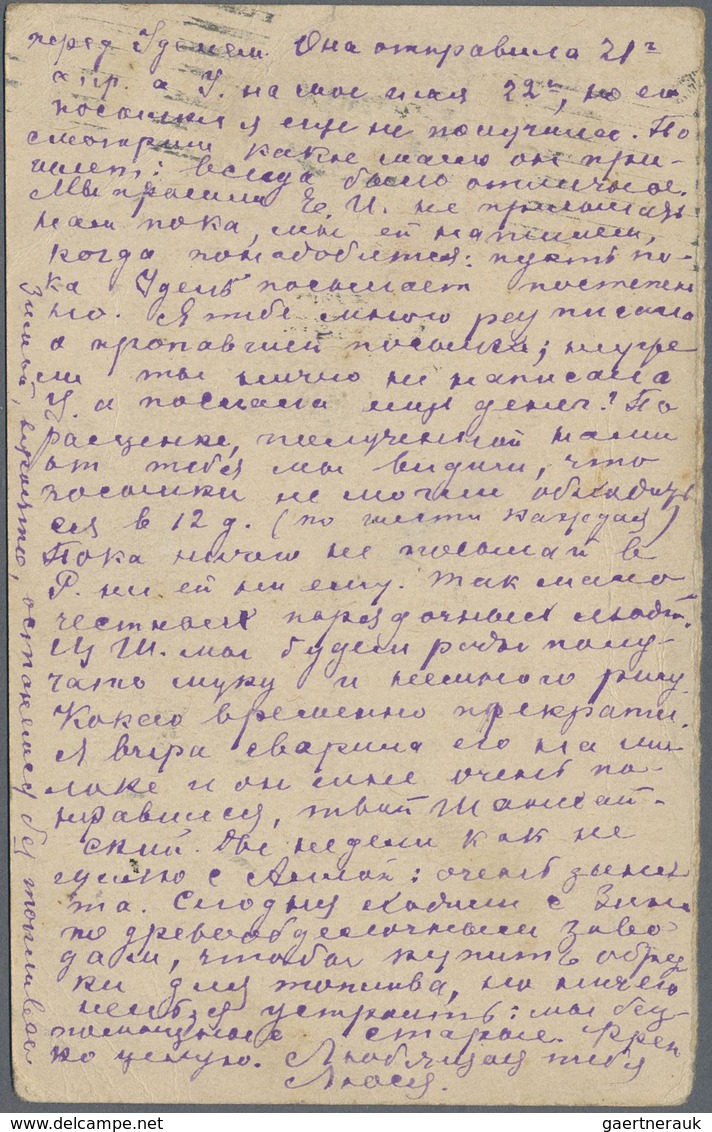 перед Уделем. Она отправила 21го
апр. а У. на мое имя 22го, но ея
посылки я еще не получила. По
смотрим какое масло он при-
шлет: всегда было отличное.
Мы просили Е. И. не присылать
нам пока, мы ей напишем,
когда понадобится: пусть по-
ка Удель посылает постепен
но. Я тебе много раз писала
о пропавшей посылке;
ли ты ничего не написала
У. а послала ище денег? По
расценке, полученной нами
от тебя мы видим, что
посылки не могли обходить
ся в 12 д. (по шести каждая)
Пока ничего не посылай в
Р. ни ей ни ему. Так мало
честных порядочных людей.
Из Ш. мы будем рады полу-
чать муку и немного рису.
Какао временно прекрати.
Я вчера сварила его на мо
локе и он мне очень по-
нравился, твой Шанхай-
ский. Две недели как не
гуляю с Аллой: очень заня
та. Сегодня ходили с Зиной
по древообделочным заво
дам, чтобы купить обрез
ки для топлива, но ничего
нельзя устроить: мы бес-
помощные старые. Креп
ко целую. Любящая тебя
Люся.
Зимой, вероятно, останемся без топлива
gaertnerauk